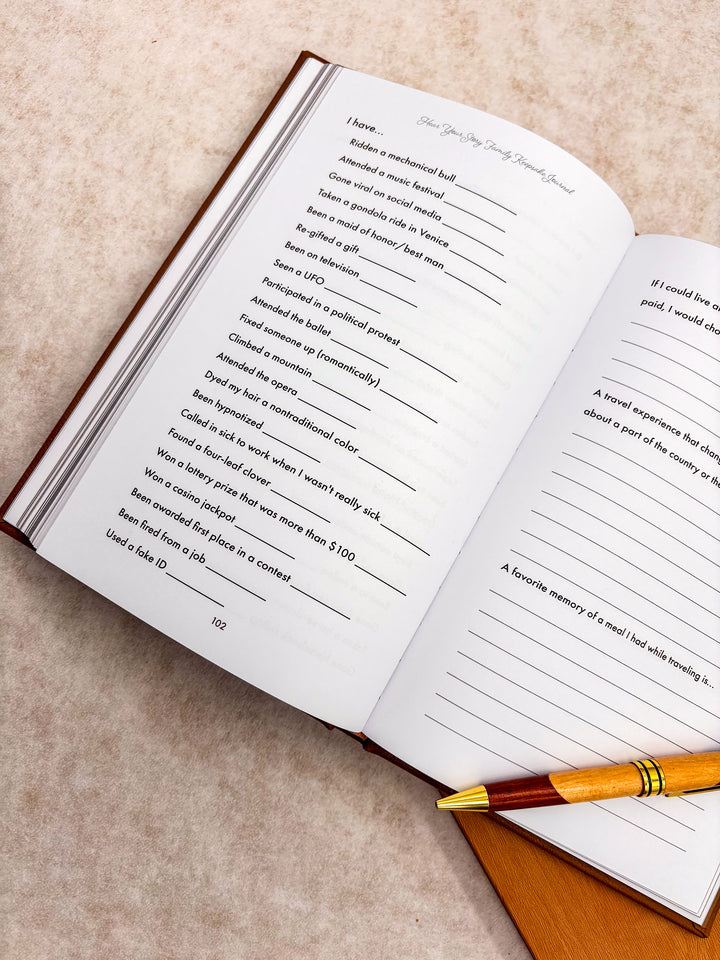 Hear Your Story Family Keepsake Journal
I have...
Ridden a mechanical bull
Attended a music festival
Gone viral on social media
Taken a gondola ride in Venice
Been a maid of honor/best man
Re-gifted a gift
Been on television
Seen a UFO
Participated in a political protest
Attended the ballet
Fixed someone up (romantically)
Climbed a mountain
Attended the opera
Dyed my hair a nontraditional color
Been hypnotized
Called in sick to work when I wasn't really sick
Found a four-leaf clover
Won a lottery prize that was more than $100
Won a casino jackpot
Been awarded first place in a contest
Been fired from a job
Used a fake ID
102
If I could live
paid, I would
A travel experience that
about a part of the country or
A favorite memory of a meal I had while traveling is...